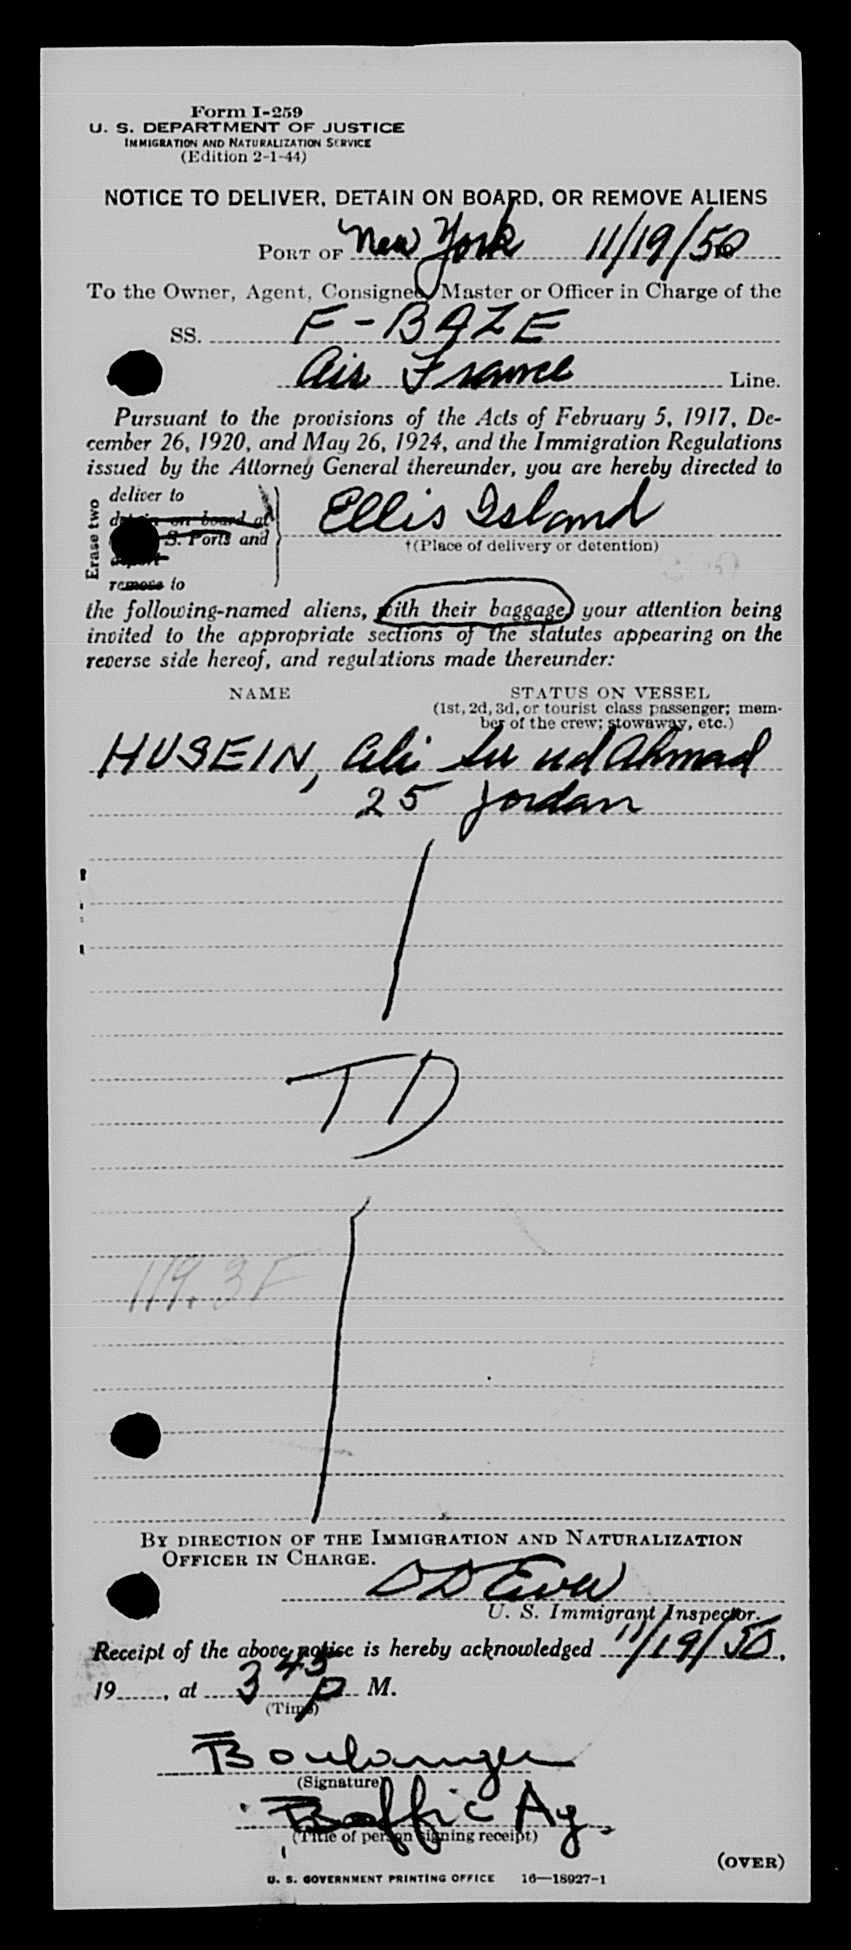 Form I-259
U. S. DEPARTMENT OF JUSTICE
IMMIGRATION AND NATURALIZATION SERVICE
(Edition 2-1-44)
NOTICE TO DELIVER, DETAIN ON BOARD, OR REMOVE ALIENS
PORT OF New York 11/19/50
To the Owner, Agent, Consignee, Master or Officer in Charge of the
SS. F-BAZE
Air France Line.
Pursuant to the provisions of the Acts of February 5, 1917, De-
cember 26, 1920, and May 26, 1924, and the Immigration Regulations
issued by the Attorney General thereunder, you are hereby directed to
Erase two
deliver to
detain on board at
S. Ports and
remove to
Ellis Island
†(Place of delivery or detention)
the following-named aliens, with their baggage, your attention being
invited to the appropriate sections of the statutes appearing on the
reverse side hereof, and regulations made thereunder:
NAME STATUS ON VESSEL
(1st, 2d, 3d, or tourist class passenger; mem-
ber of the crew; stowaway, etc.)
HUSEIN, Ali Ahmad
25 Jordan
TD
119.3F
BY DIRECTION OF THE IMMIGRATION AND NATURALIZATION
OFFICER IN CHARGE.
U. S. Immigrant Inspector.
Receipt of the above notice is hereby acknowledged 11/19/50,
19......, at 3 45 P M.
(Time)
Boulanger
(Signature)
Ag.
(Title of person signing receipt)
(OVER)
U. S. GOVERNMENT PRINTING OFFICE 16—18927-1